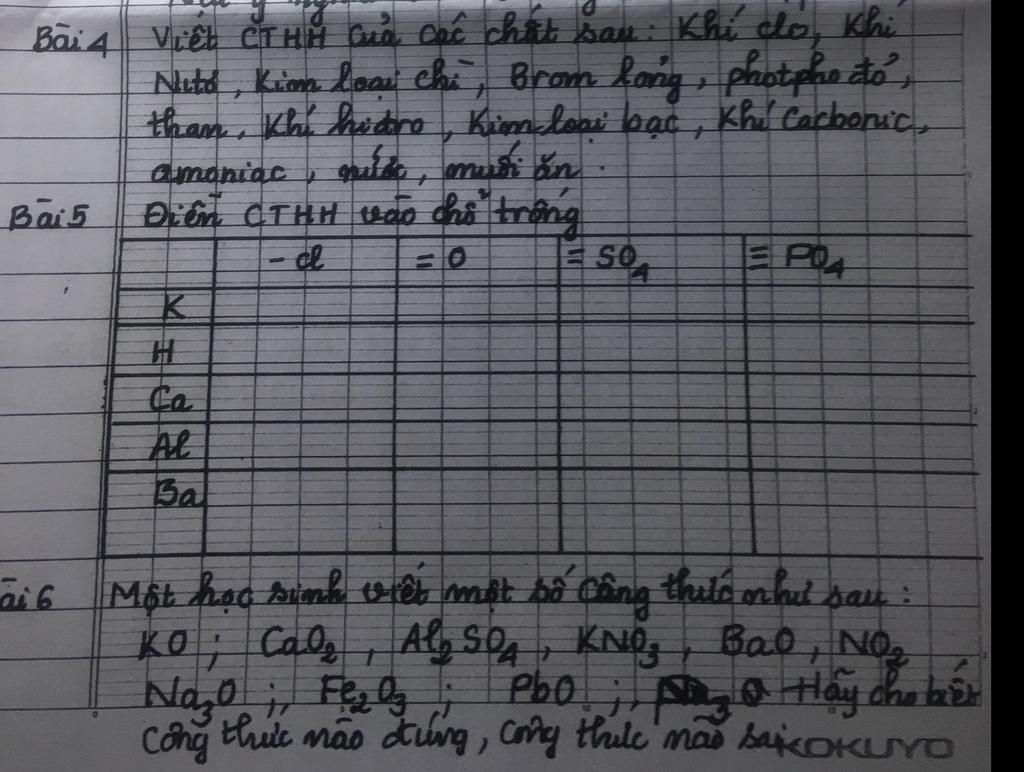 Bài 4 Viết CTHH của các chất sau: Khí clo, Khí
Nitơ, Kim loại chì, Brom lỏng, photpho đỏ,
than, Khí hiđro, Kim loại bạc, Khí Cacbonic,
amoniac, nước, muối ăn.
Bài 5 Điền CTHH vào chỗ trống
- Cl = O = SO4 ≡ PO4
K
H
Ca
Al
Ba
ài 6 Một học sinh viết một số công thức như sau:
KO; CaO2, Al2SO4, KNO3, BaO, NO2
Na3O; Fe2O3; PbO; Hãy cho biết
công thức nào đúng, công thức nào sai
KOKUYO